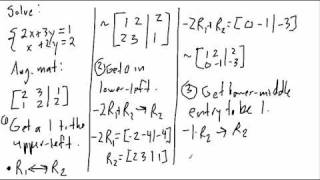 Solve:
{ 2x+3y=1
x+2y=2
Aug. mat:
[2 3 | 1
1 2 | 2]
① Get a 1 to the
upper-left.
• R₁ ↔ R₂
~ [1 2 | 2
2 3 | 1]
② Get 0 in
lower-left.
-2R₁+R₂→R₂
-2R₁=[-2 -4 | -4]
R₂=[2 3 | 1]
-2R₁+R₂=[0 -1 | -3]
~ [1 2 | 2
0 -1 | -3]
③ Get lower-middle
entry to be 1.
-1·R₂→R₂